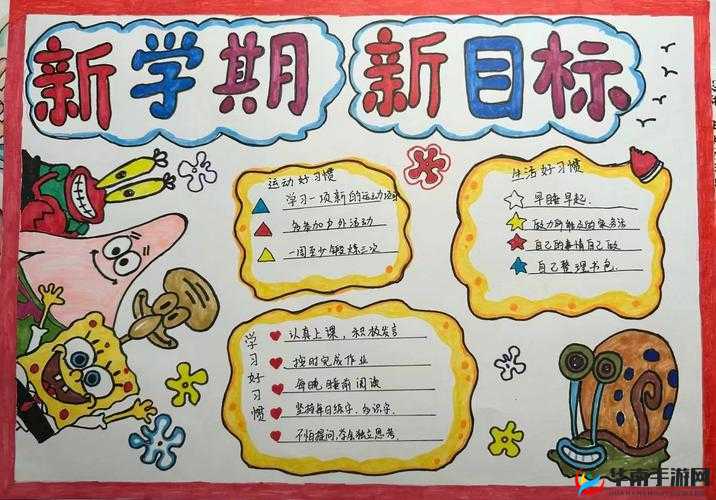 新学期 新目标
运动好习惯
学习一项新的运动项目
多参加户外活动
一周至少锻炼三次
生活好习惯
早睡早起.
做力所能及的家务活
自己的事情自己做
自己整理书包.
学习好习惯
认真上课，积极发言
按时完成作业
每晚睡前阅读
坚持每日练字，多识字.
不怕提问,学会独立思考
华南手游网